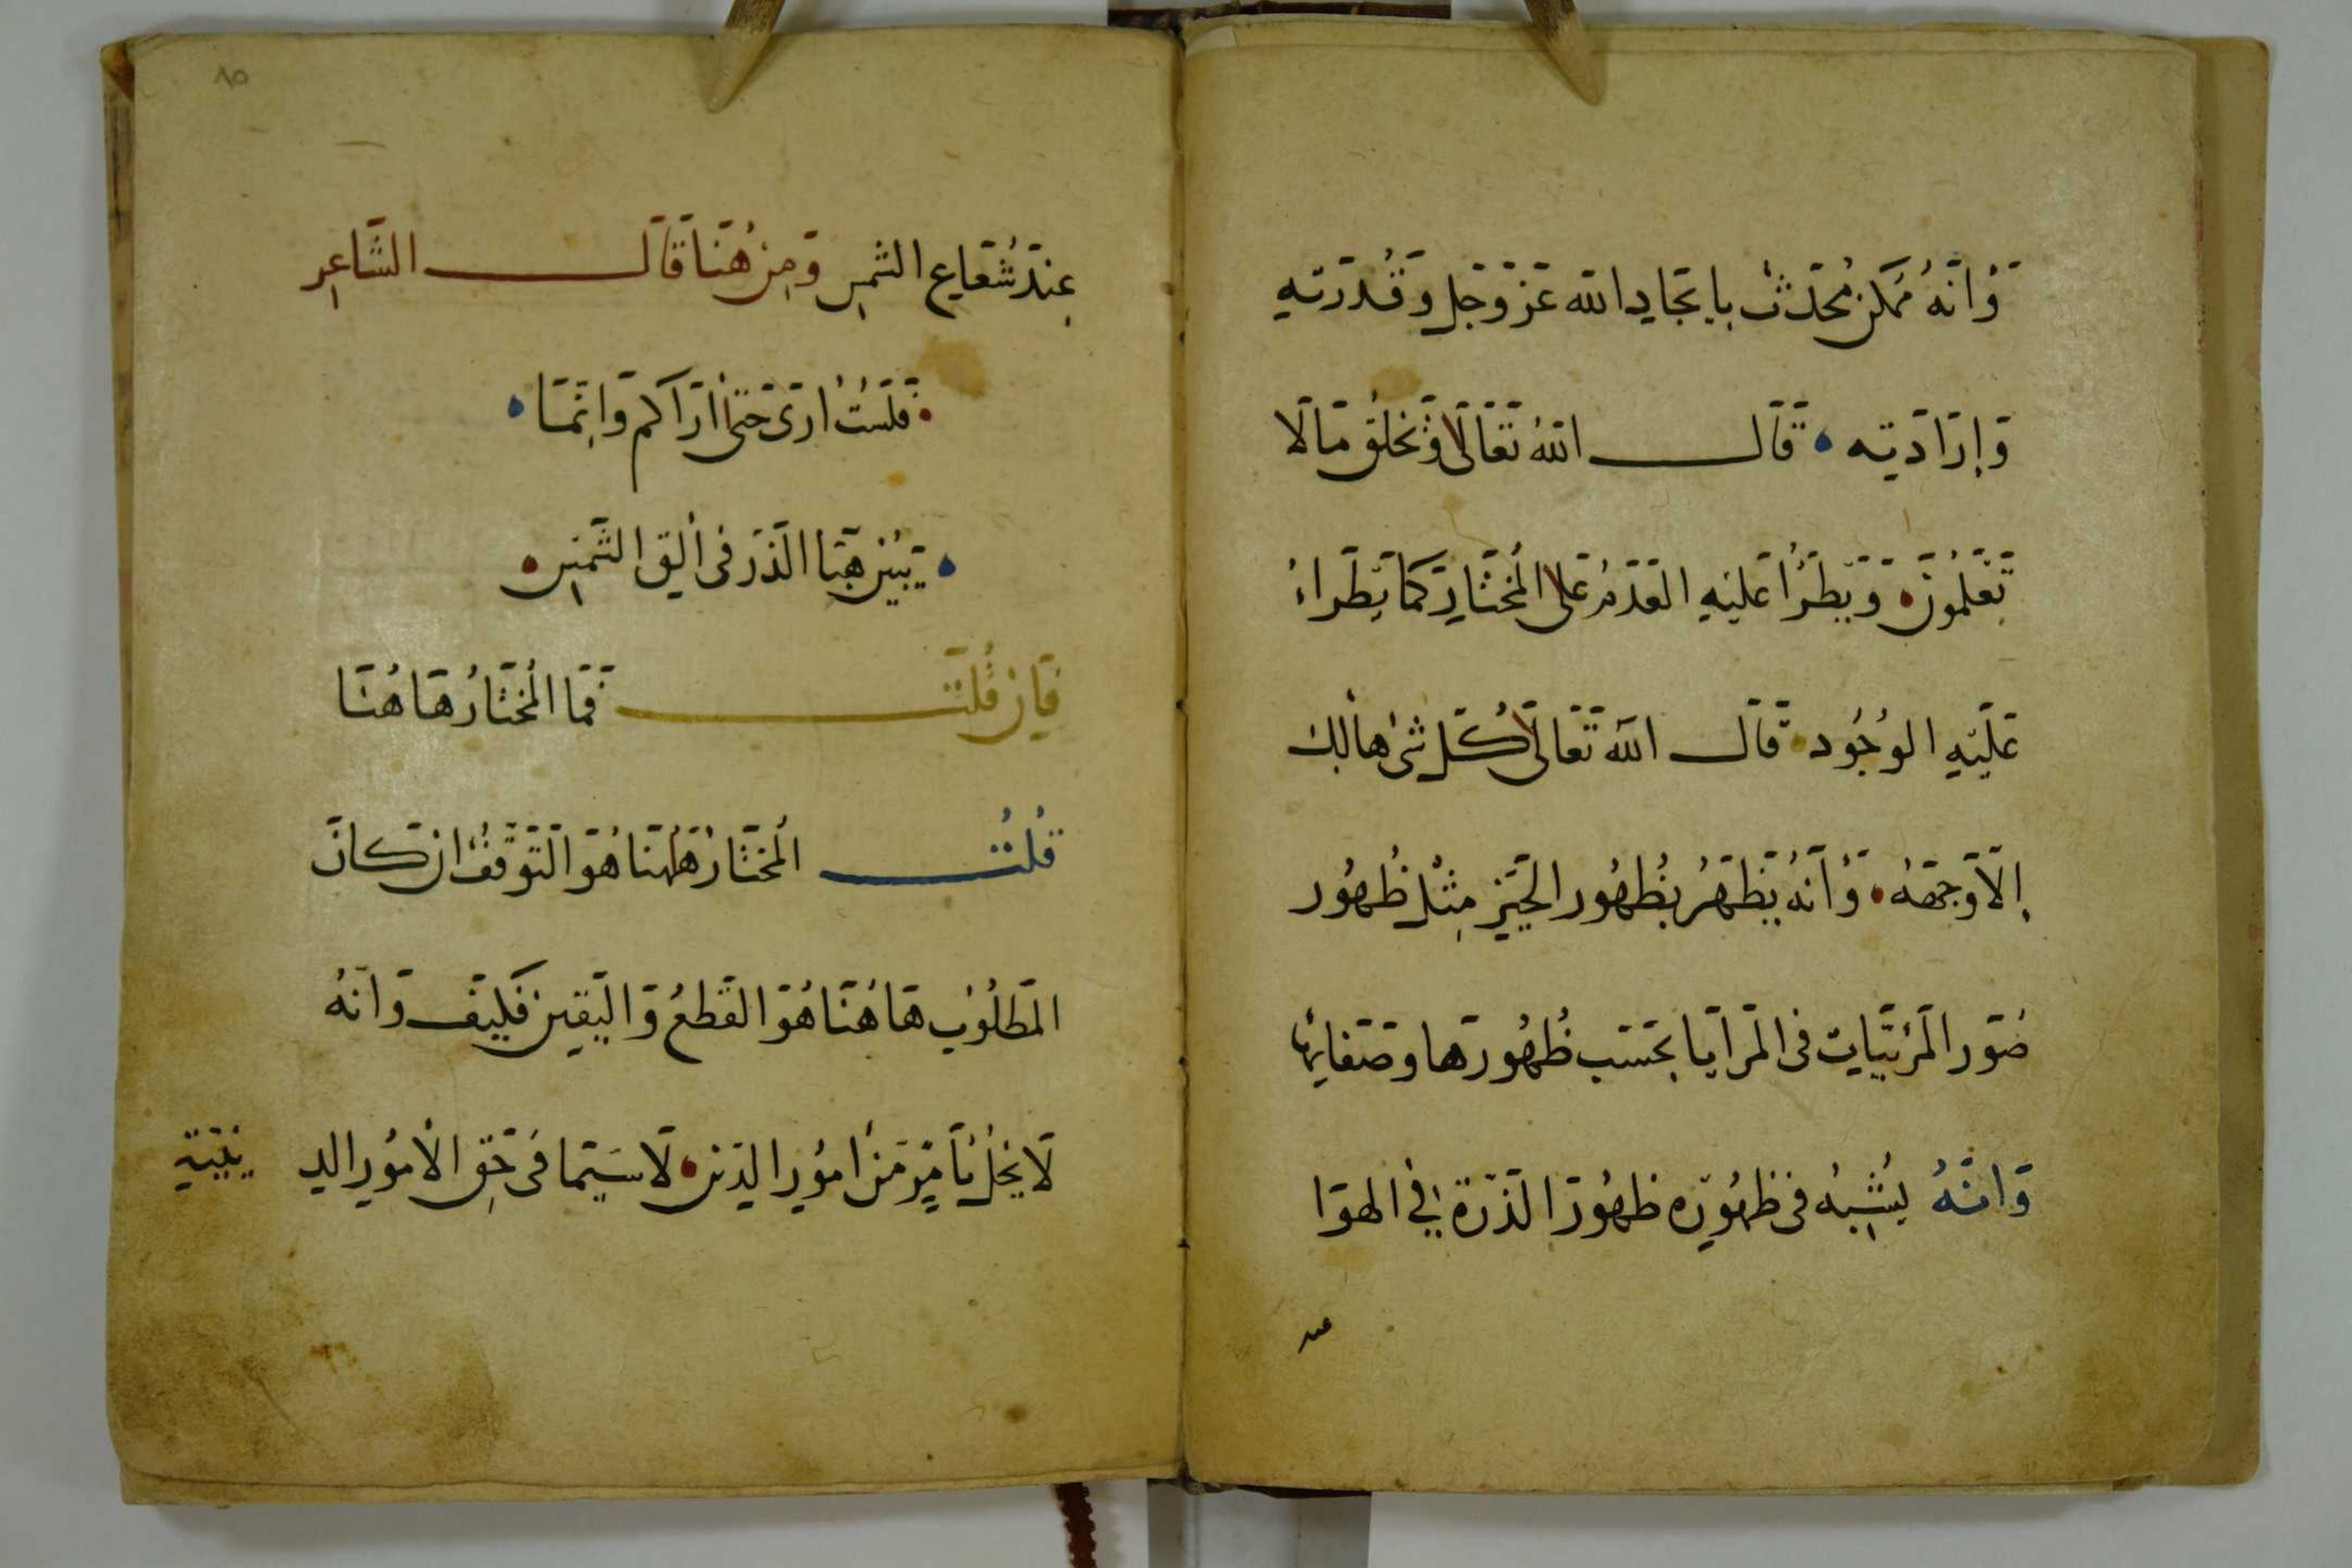 وَأَنَّهُ مُمكن مُحْدَثٌ بايجَادِ الله عَزَّ وَجَل وَقُدرَتهِ
وَإِرَادَتِه قَالَ اللهُ تَعَالَى وَيَخلُقُ مَا لَا
تَعْلَمُونَ وَيَطرَأُ عَلَيْهِ العَدَمُ عَلَى المُختَارِ كَمَا يَطرَاءُ
عَلَيْهِ الوُجُود قَالَ اللهُ تَعَالَى كُلّ شَيْ هَالِكُ
إِلَّا وَجهَهُ وَأَنَّهُ يَظهَرُ بِظُهُور الحَيِّزِ مِثْل ظُهُور
صُوَر المَرئيَّاتِ في المَرَايَا بحَسَب ظُهُورهَا وصَفَائِهَا
وَانَّهُ يُشْبِهُ في ظُهُورِه ظهُورَ الذَّرَةِ في الهوَا
عند
٨٥
عِندَ شُعَاعِ الشَّمسِ وَمِن هُنَا قَالَ الشَّاعِر
فَلَستُ أرَى حَتَّى أرَاكم وَإنَّمَا
يَبِينُ هَبَا الذَّر في ألَقِ الشَّمسِ
فَإِن قُلتَ فَمَا المُختَارُ هَا هُنَا
قُلتُ المُختَارُ هَاهُنَا هُوَ التَّوَقُّفُ ان كَانَ
المَطلُوب هَا هُنَا هُوَ القَطعُ وَاليَقِين فَكَيْفَ وَانهُ
لَا يخلُّ بأمرٍ مِن أمُورِ الدّين لَا سيَّمَا في حَقِّ الأمُورِ الد
يْنِيَّةِ